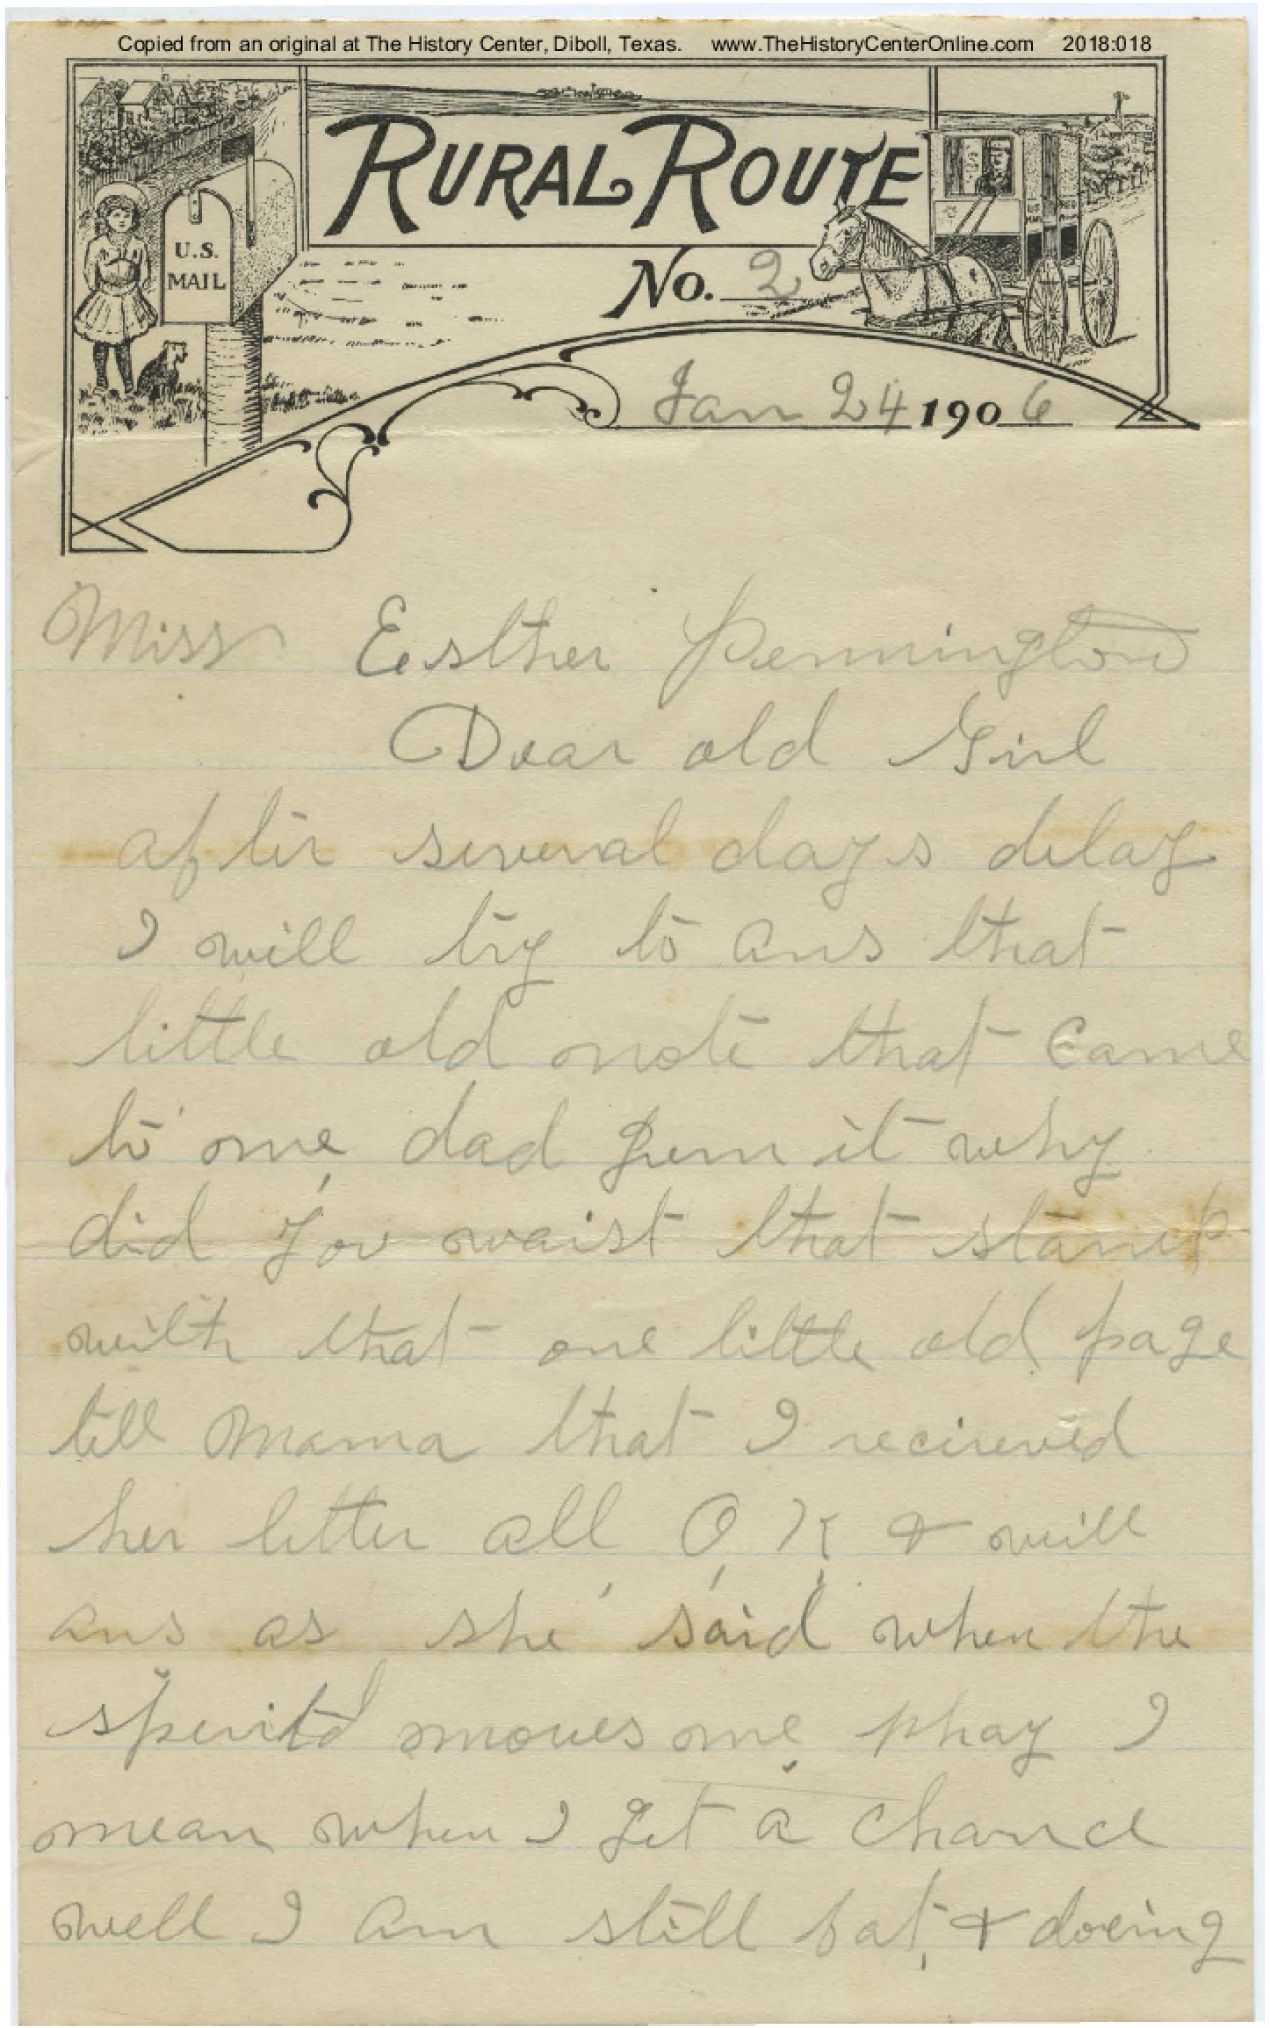 Copied from an original at The History Center, Diboll, Texas. www.TheHistoryCenterOnline.com 2018:018
RURAL ROUTE
U.S.
MAIL
No. 2
Jan 24 1906
Miss Esther Pennington
Dear old Girl
after several days delay
I will try to ans that
little old note that Came
to me, dad gum it why
did you waist that stamp
with that one little old page
till Mama that I recieved
her letter all O, K, & will
ans as she said when the
moves me phay I
mean when I get a chance
well I am still fat, & doeing